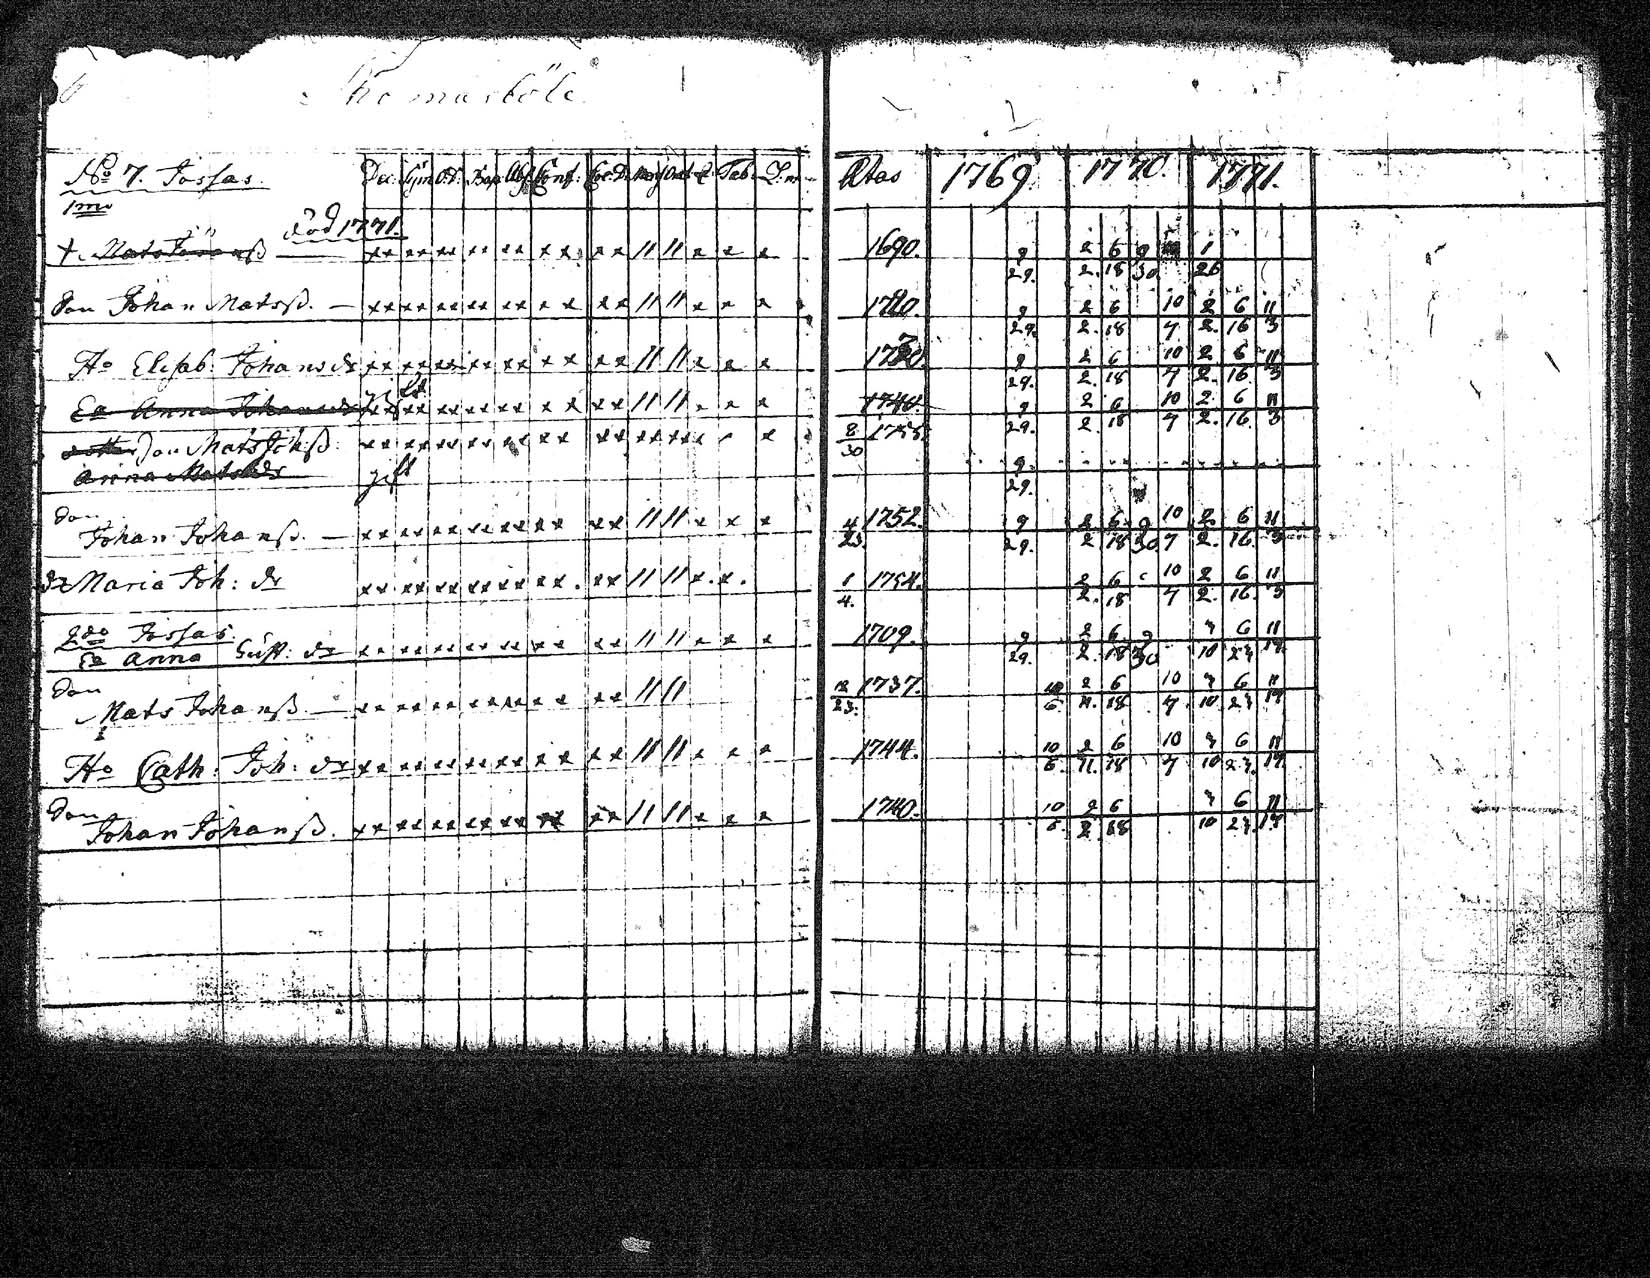 Thomasböle
No 7. Jossas. Dec: Sym O.D. Bap: Abs: Conf: Coe D. Tab: Ætas 1769 1770. 1771.
1mo
död 1771.
†. Mats Jöranß xx xx xx xx xx xx xx // // x x x 1690. 9/29. 2/2. 6/18 9/30 1/26
Son Johan Matsß. — xx xx xx xx xx xx xx // // x x x 9/29. 2/2. 6/18 10/7 2/2. 6/16 11/3
Ho Elisab: Johansdr xx xx xx xx xx xx xx // // x x x 9/29. 2/2. 6/18 10/7 2/2. 6/16. 11/3
Ea Anna Johansdr gift xx xx xx xx xx xx // // x x x 1740. 9/29. 2/2. 6/18 10/7 2/2. 6/16. 11/3
dotter Son Mats Johß. xx xx xx xx xx xx xx xx xx x x x 8/30
Anna Matsdr gift 9/29.
Son
Johan Johanß. — xx xx xx xx xx xx xx // // x x x 4/23. 1752. 9/29. 2/2 6/18 9/30 10/7 2/2. 6/16. 11/3
dr Maria Joh: dr xx xx xx xx xx xx. xx // // x. x. 1/4. 1754. 2/2. 6/18 10/7 2/2. 6/16. 11/3
2do Jossas.
Ea Anna Gust: dr xx xx xx xx xx xx xx // // x x x 1709. 9/29. 2/2. 6/18 9/30 7/10 6/27 11/17
Son
Mats Johanß — xx xx xx xx xx xx xx // // 12/23. 1737. 10/6. 2/11. 6/18 10/7 7/10 6/27 11/17
Ho Cath: Joh: dr xx xx xx xx xx xx xx // // x x x 1744. 10/6. 2/11. 6/18 10/7 7/10 6/27. 11/17
Son
Johan Johanß. xx xx xx xx xx xx xx // // x x x 1740. 10/6. 2/2. 6/18 7/10 6/27. 11/17